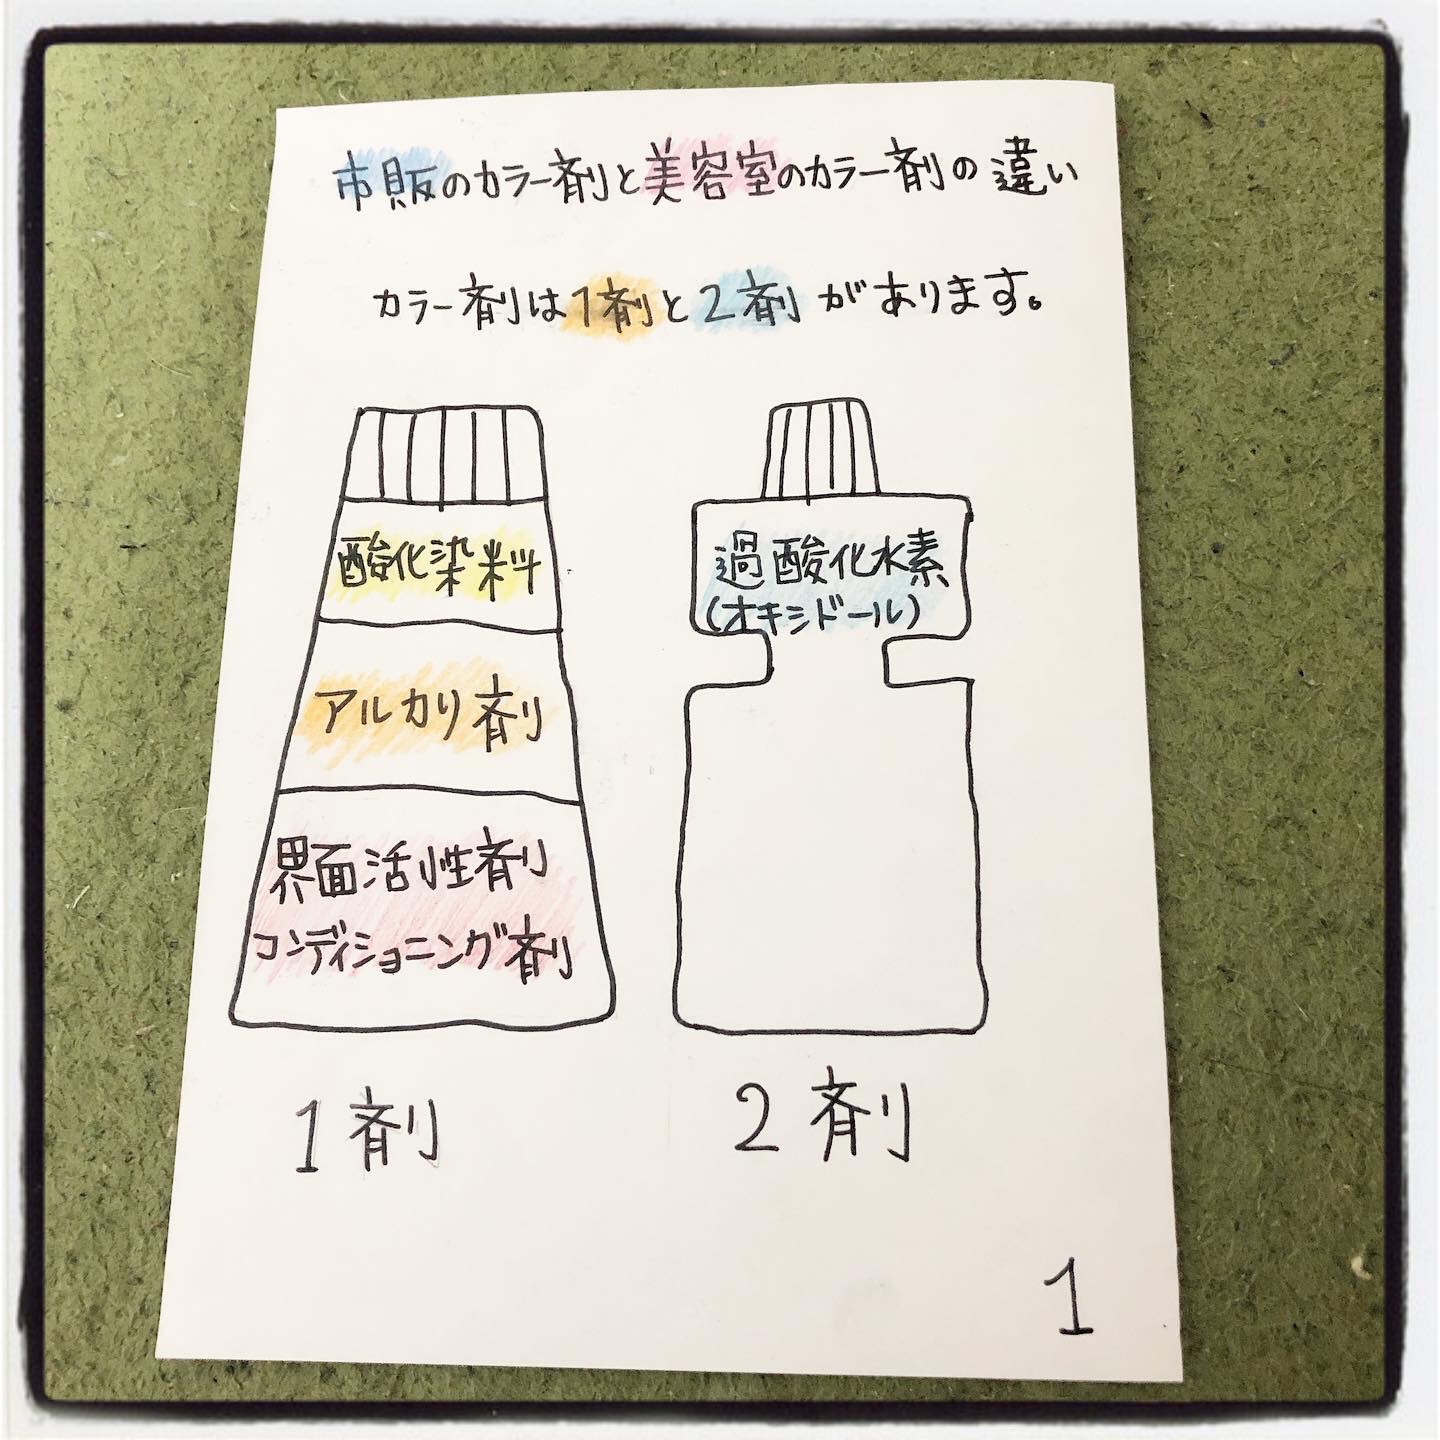 市販のカラー剤と美容室のカラー剤の違い
カラー剤は1剤と2剤があります。
酸化染料
アルカリ剤
界面活性剤
コンディショニング剤
1剤
過酸化水素
(オキシドール)
2剤
1